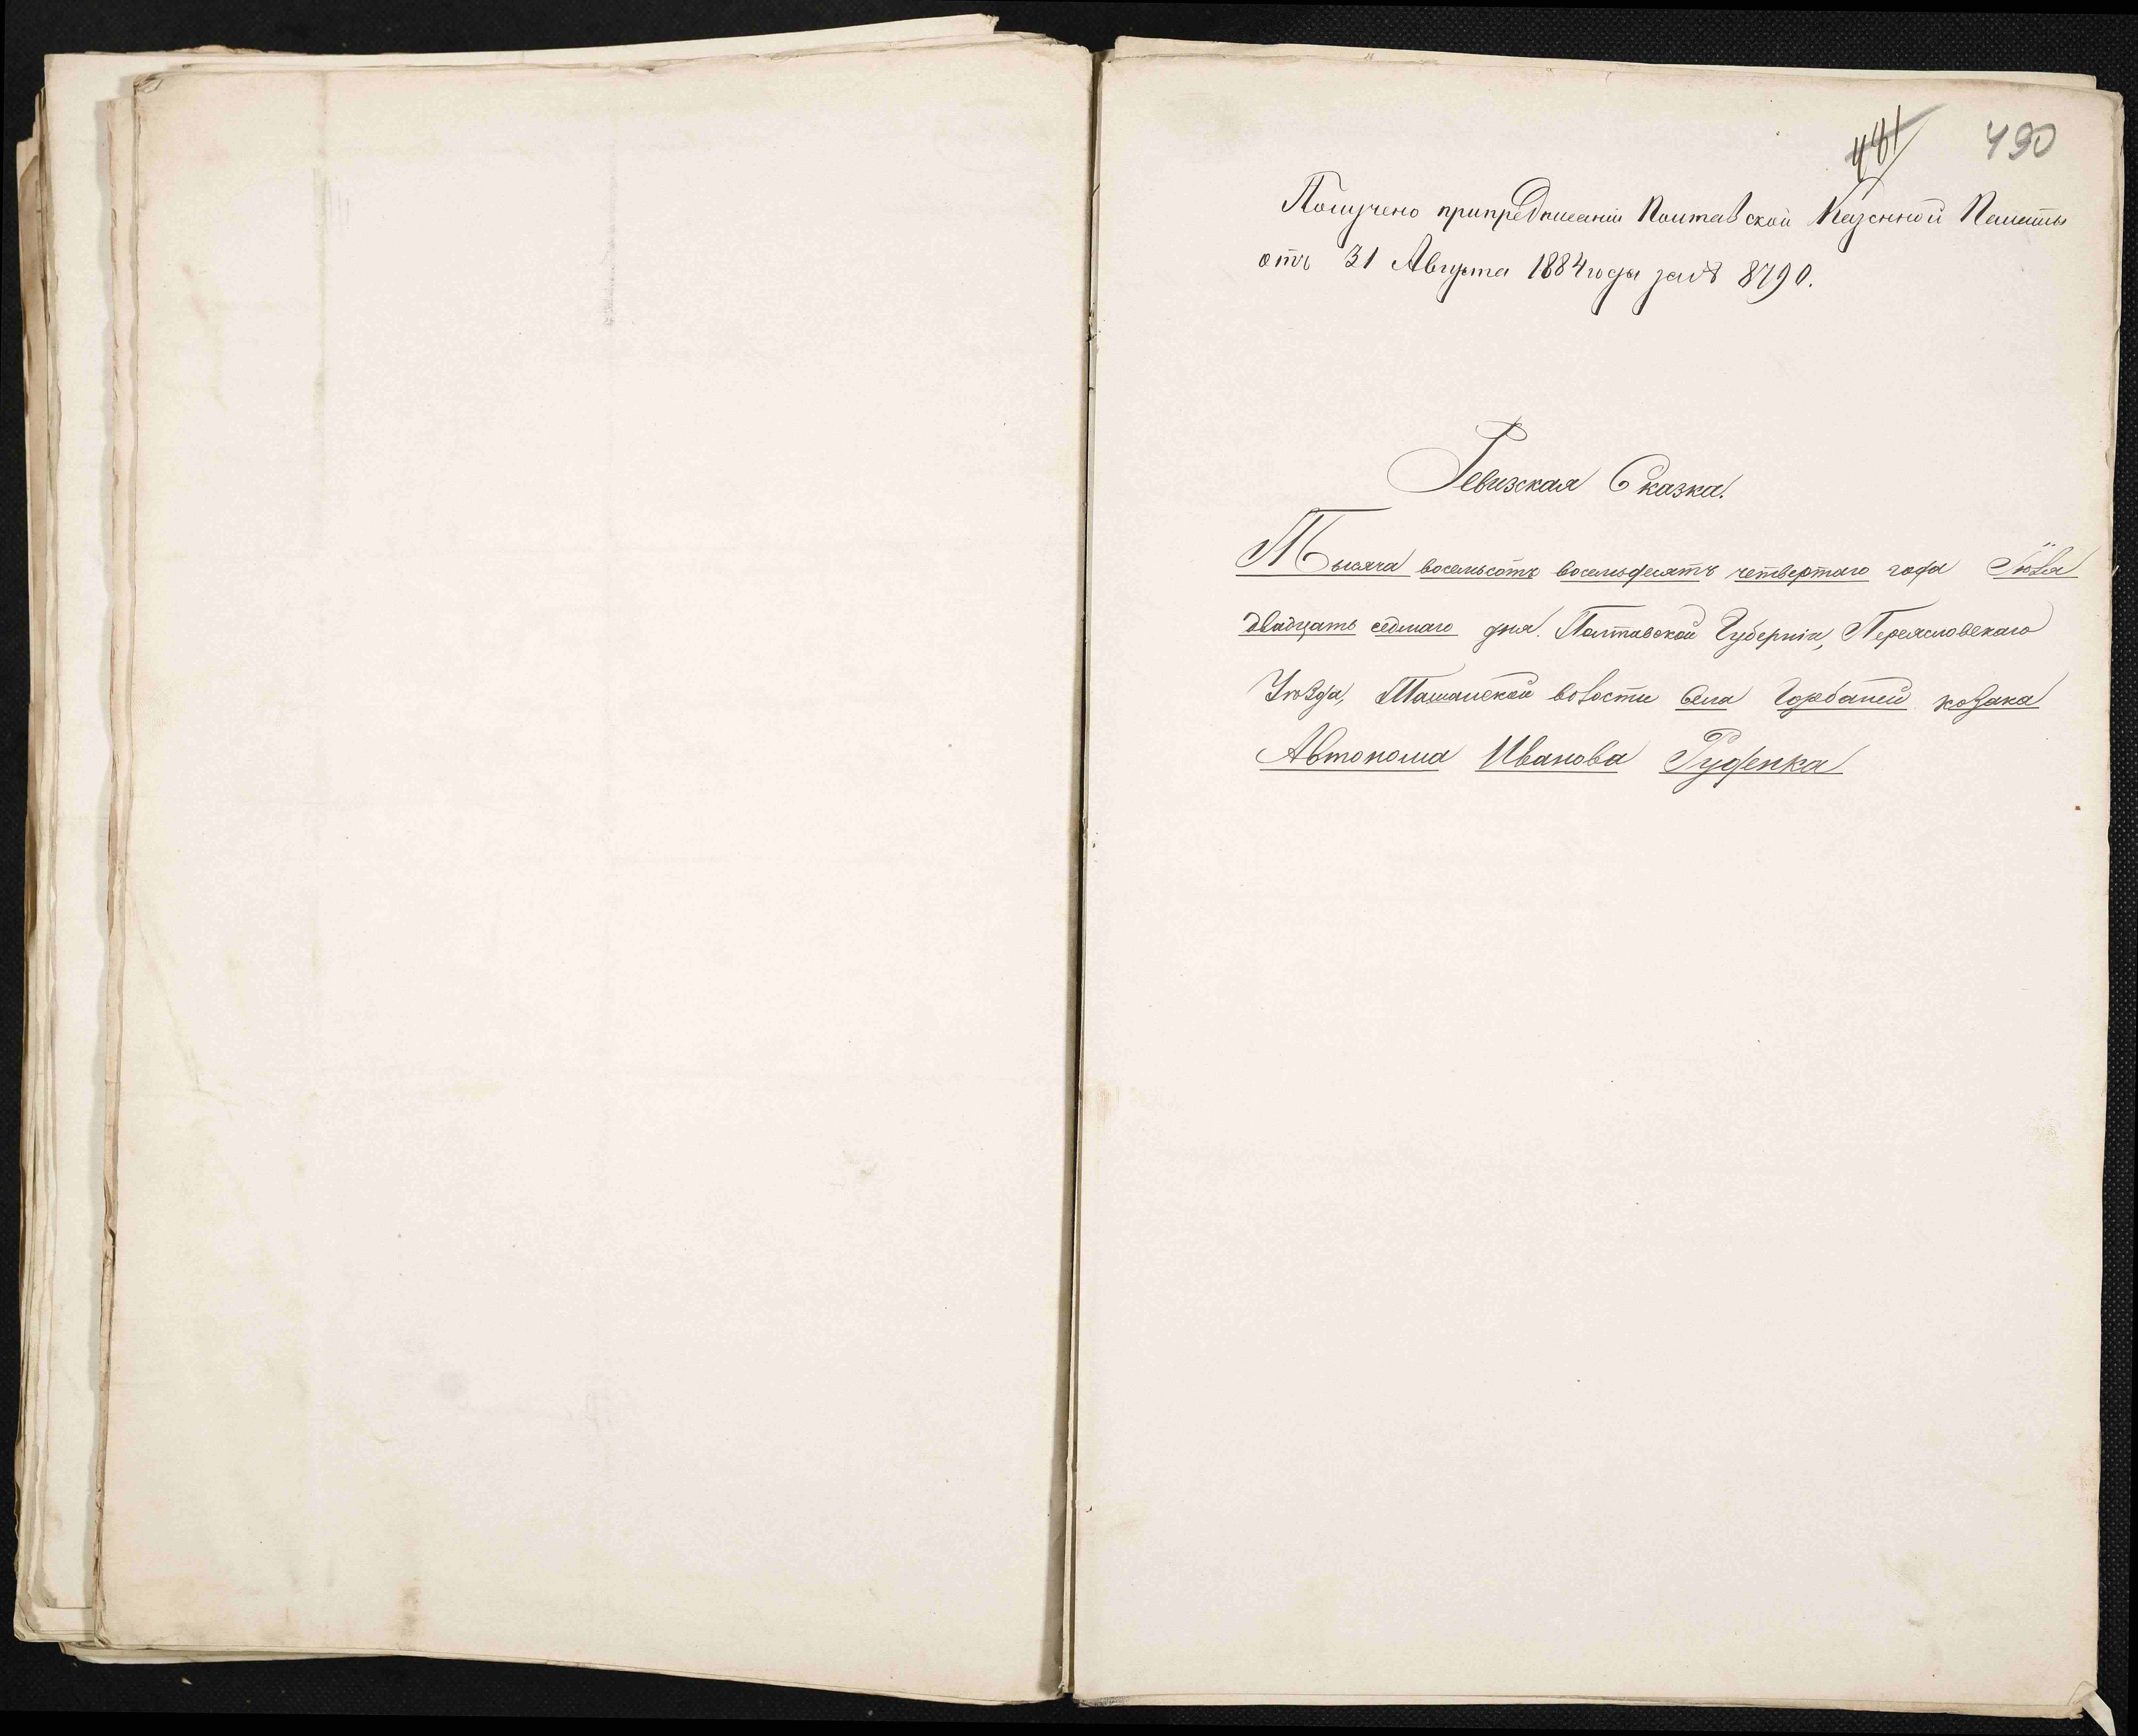 481 490
Получено припредписаніи Полтавской Казенной Палаты
отъ 31 Августа 1884 года за № 8790.
Ревизская Сказка.
Тысяча восемьсотъ восемьдесятъ четвертаго года Іюля
двадцать седмаго дня. Полтавской Губерніи, Переясловскаго
Уѣзда, Ташанской волости села Горбаней козака
Автонома Иванова Руденка